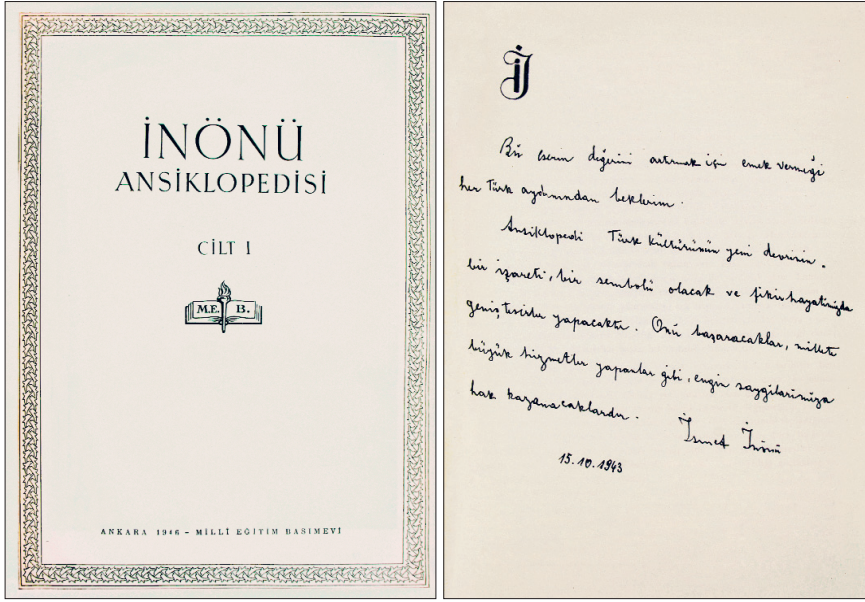 İNÖNÜ
ANSİKLOPEDİSİ
CİLT I
M.E. B.
ANKARA 1946 - MİLLÎ EĞİTİM BASIMEVİ
İ
Bu eserin değerini artırmak için emek vermeği
her Türk aydınından beklerim.
Ansiklopedi Türk kültürünün yeni devrinin
bir işareti, bir sembolü olacak ve fikir hayatımızda
geniş tesirler yapacaktır. Onu başaracaklar, millete
büyük hizmetler yapanlar gibi, engin saygılarımıza
hak kazanacaklardır. İsmet İnönü
15.10.1943